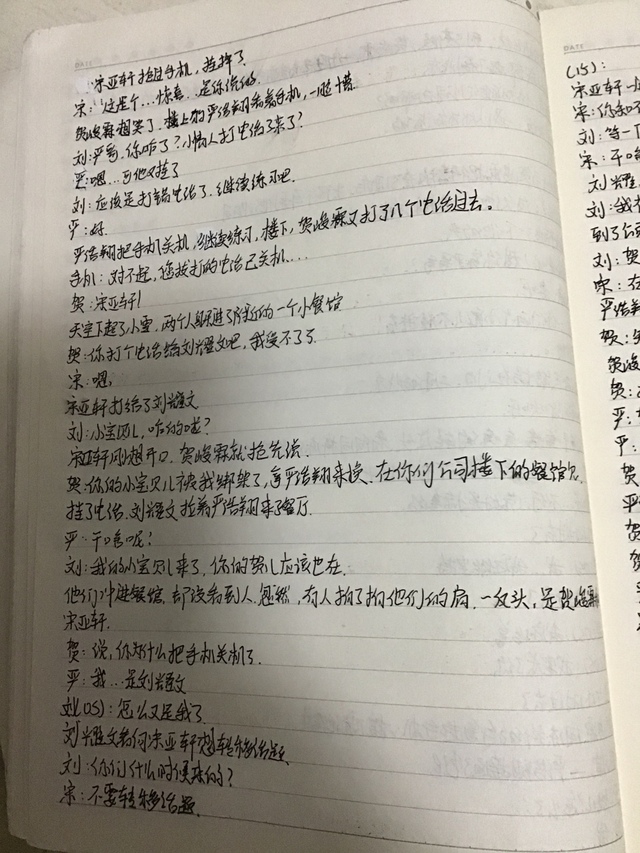 宋亚轩抢过手机，挂掉了
宋：这是个…惊喜，是你说的
贺峻霖想哭了，楼上的严浩翔看着手机，一脸懵
刘：严哥，你咋了？小情人打电话了来了？
严：嗯…可他又挂了
刘：应该是打错电话了，继续练习吧
严：好
严浩翔把手机关机，继续练习，楼下，贺峻霖又打了几个电话过去。
手机：对不起，您拨打的电话已关机…
贺：宋亚轩！
天空下起了小雪，两个人跑进了附近的一个小餐馆
贺：你打个电话给刘耀文吧，我受不了了
宋：嗯，
宋亚轩打给了刘耀文
刘：小宝贝儿，咋的啦？
宋亚轩刚想开口，贺峻霖就抢先说
贺：你的小宝贝儿被我绑架了，拿严浩翔来换，在你们公司楼下的餐馆见
挂了电话，刘耀文拉着严浩翔来了餐厅
严：干啥呢？
刘：我的小宝贝来了，你的贺儿应该也在
他们冲进餐馆，却没看到人，忽然，有人拍了拍他们的肩，一反头，是贺峻霖和
宋亚轩
贺：说，你为什么把手机关机了
严：我…是刘耀文
刘(OS)：怎么又是我了
刘耀文看向宋亚轩想转移话题
刘：你们什么时候来的？
宋：不要转移话题
(15)：
宋亚轩一
宋：你和
刘：等一
宋：干啥
刘耀
刘：我
到了
刘：贺
宋：在
严浩
贺：
贺峻
贺：
严：
严：
贺
贺
严